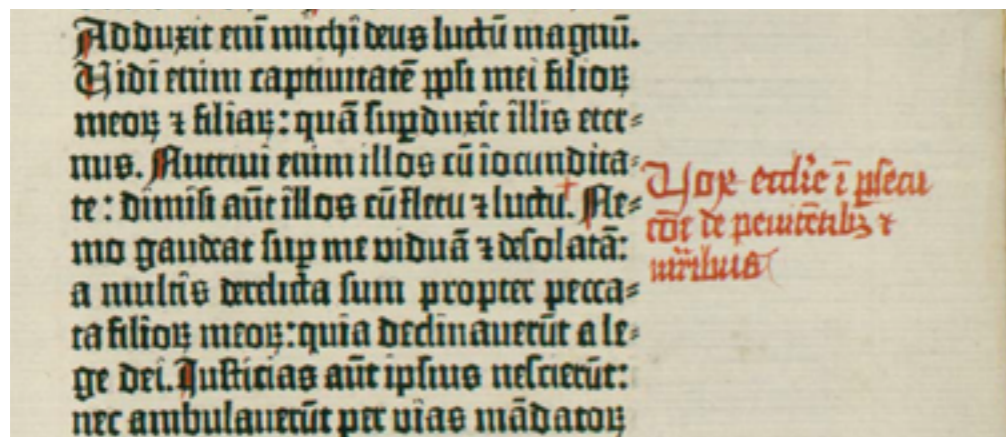 Adduxit eni̅ michi deus luctu̅ magnu̅.
Uidi enim captiuitate̅ ppl'i mei filioꝝ
meoꝝ ⁊ filiaꝝ: qua̅ suꝑduxit illis eter⸗
nus. Nutriui enim illos cu̅ iocundita⸗
te: dimisi aut̅ illos cu̅ fletu ⁊ luctu. Ne⸗
mo gaudeat suꝑ me uidua̅ ⁊ desolata̅:
a multis derelicta sum propter pecca⸗
ta filioꝝ meoꝝ: quia declinaueru̅t a le⸗
ge dei. Justicias aut̅ ipsius nescieru̅t:
nec ambulaueru̅t per uias ma̅datoꝝ
Uox eccl'ie i̅ ꝑsecu
de ⁊